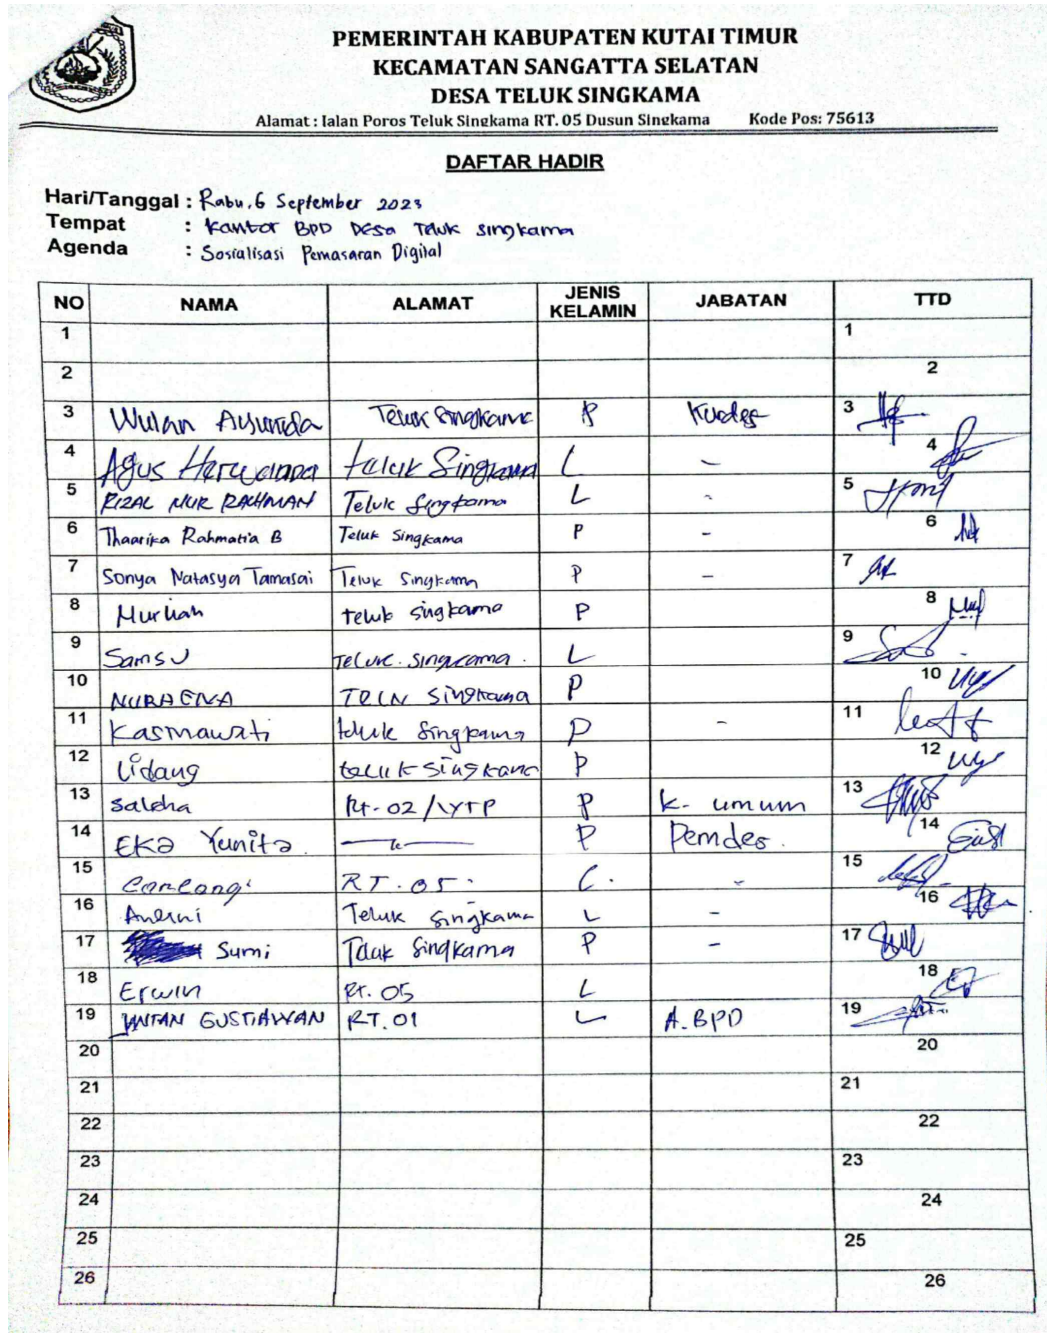 PEMERINTAH KABUPATEN KUTAI TIMUR
KECAMATAN SANGATTA SELATAN
DESA TELUK SINGKAMA
Alamat : Jalan Poros Teluk Singkama RT. 05 Dusun Singkama Kode Pos: 75613
DAFTAR HADIR
Hari/Tanggal : Rabu, 6 September 2023
Tempat : Kantor BPD Desa Teluk Singkama
Agenda : Sosialisasi Pemasaran Digital
NO NAMA ALAMAT JENIS KELAMIN JABATAN TTD
1 1
2 2
3 Wulan Ayunda Teluk Singkama P 3
4 Agus Herwanna teluk Singkama L - 4
5 RIZAL NUR RACHMAN Teluk Singkama L - 5
6 Thaarika Rahmatia B Teluk Singkama P - 6
7 Sonya Natasya Tamasai Teluk Singkama P - 7
8 Murliah teluk singkama P 8
9 Samsu Teluk singkama. L 9
10 NURHENA singkama P 10
11 Kasmawati teluk singkama P - 11
12 Lidang teluk singkama P 12
13 Saleha Rt-02 / P K. umum 13
14 Eka Yunita P Pemdes. 14
15 RT. 05. L. - 15
16 Teluk singkama L - 16
17 Sumi Teluk Singkama P - 17
18 Erwin Rt. 05 L 18
19 INTAN GUSTIAWAN RT. 01 L A. BPD 19
20 20
21 21
22 22
23 23
24 24
25 25
26 26